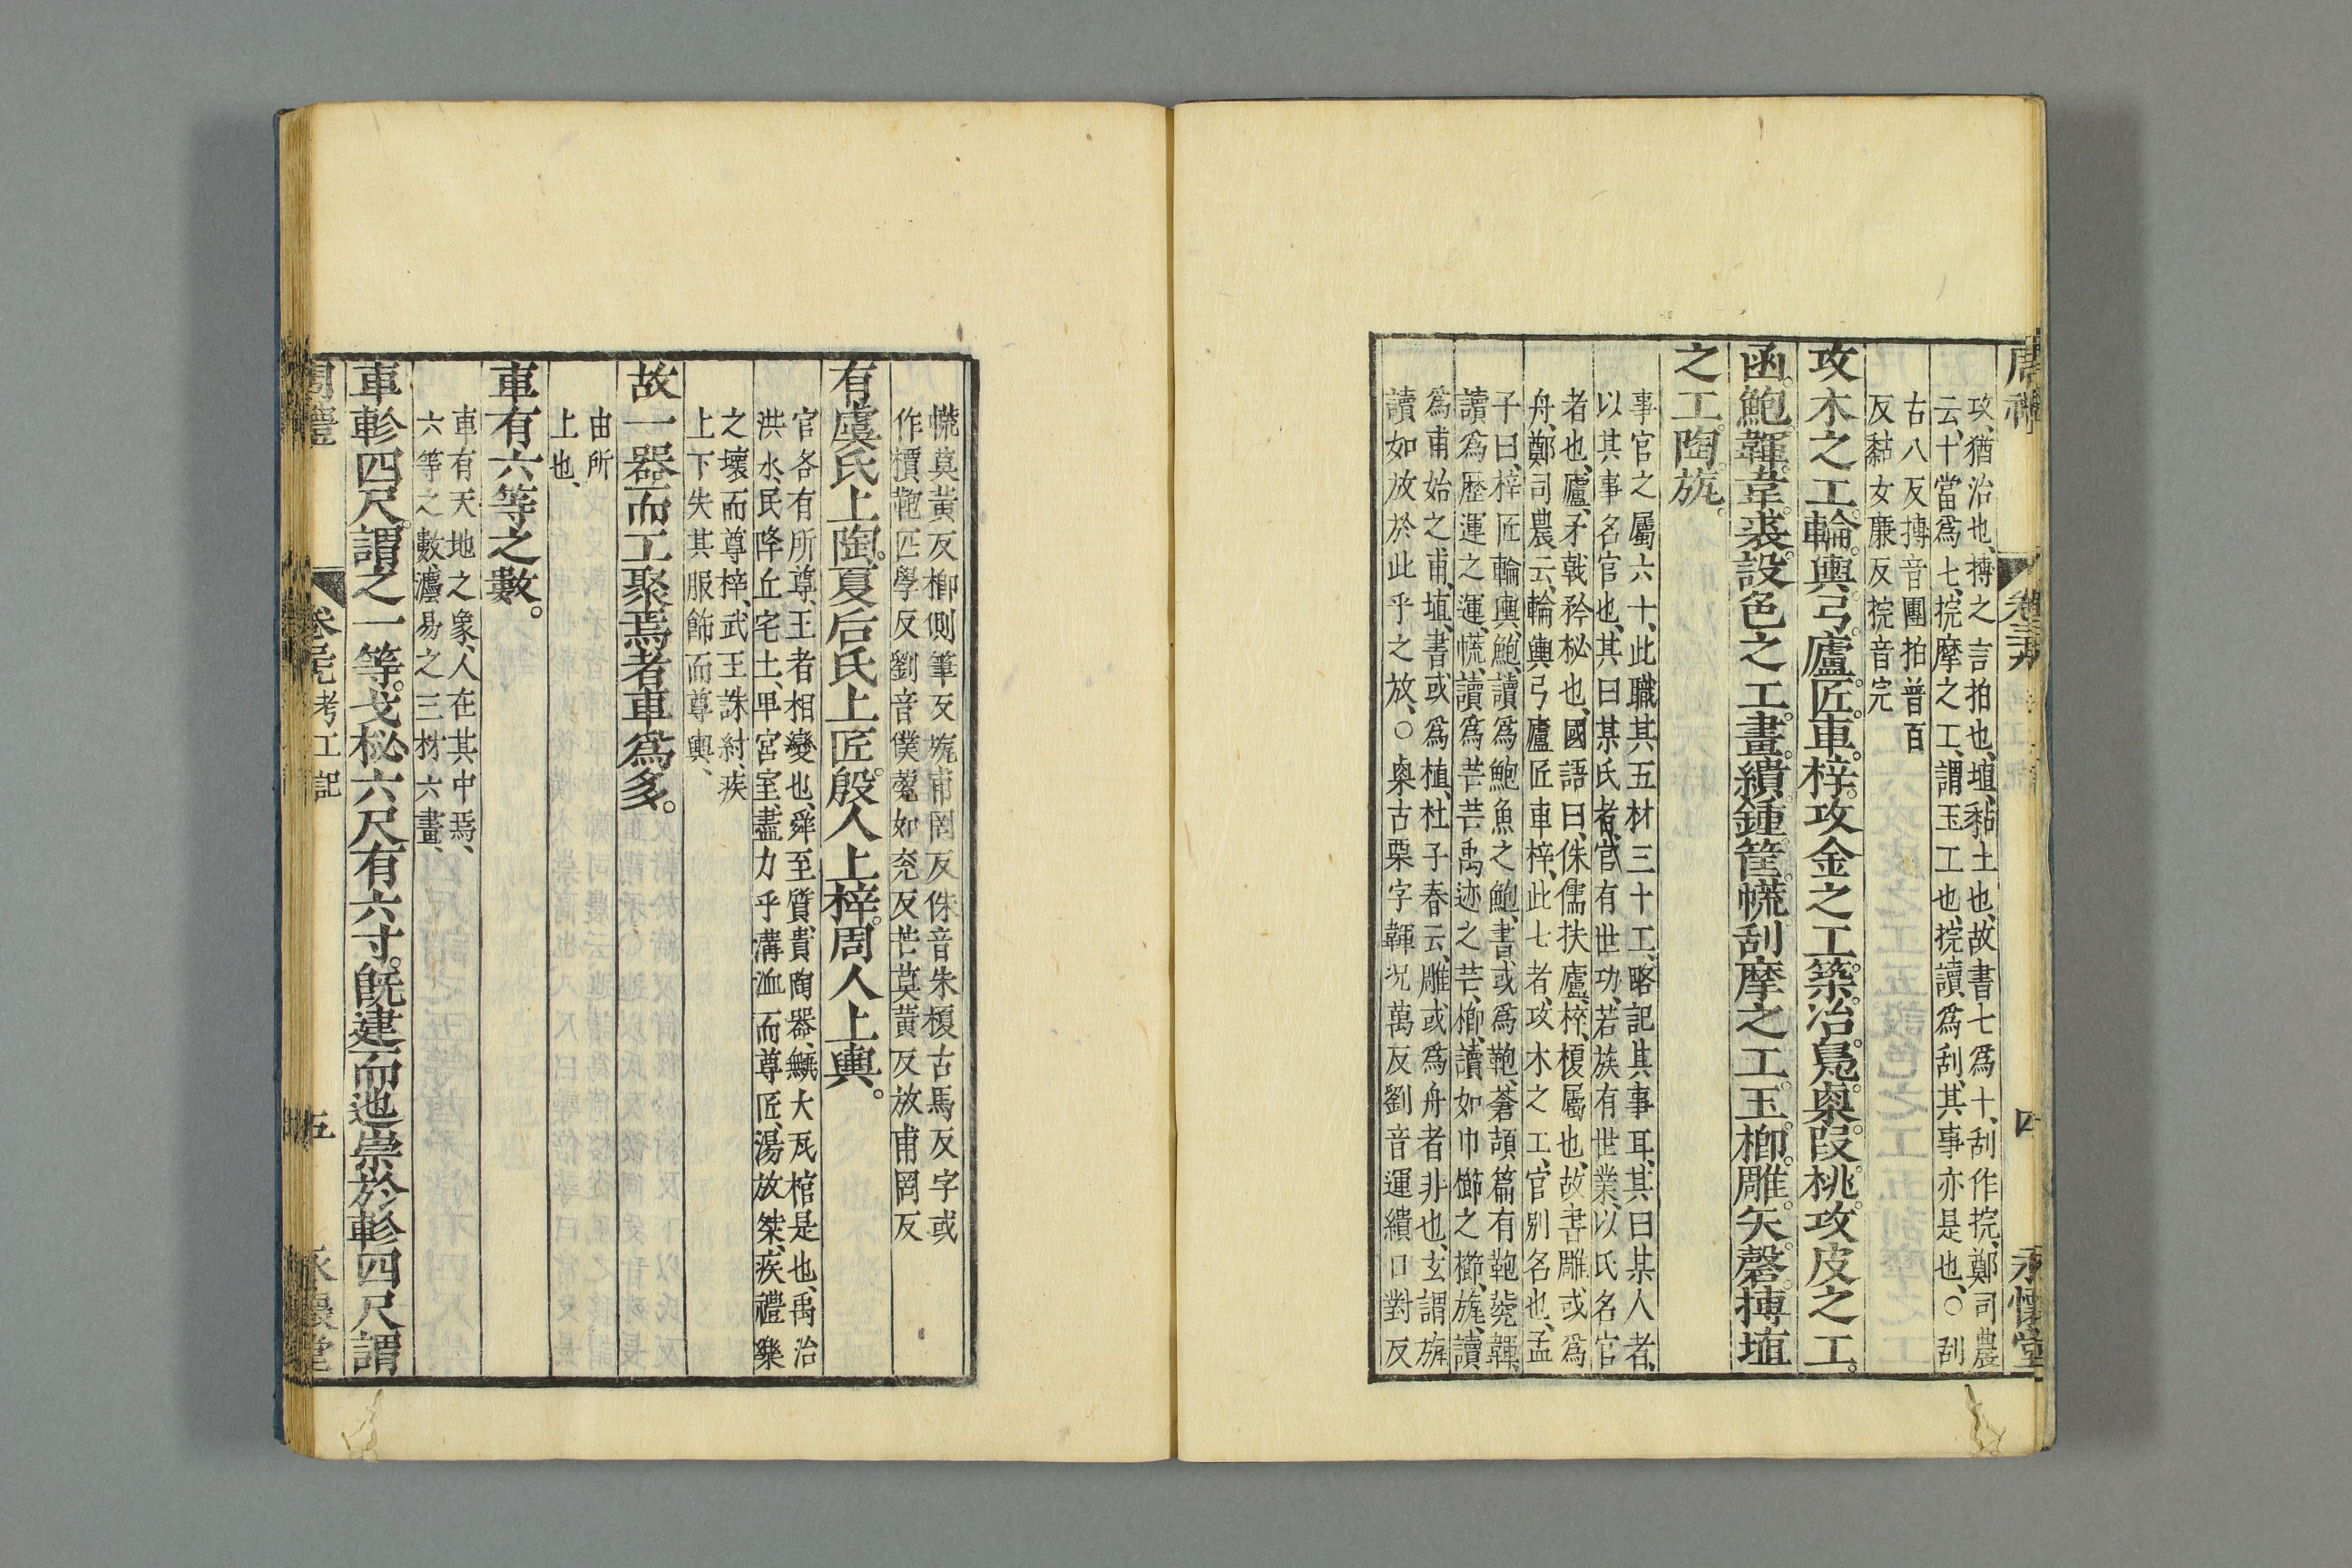 攻猶治也、搏之言拍也、埴、黏土也、故書七爲十、刮作捖、鄭司農
云、十當爲七、捖摩之工、謂玉工也、捖讀爲刮、其事亦是也、○刮
古八反搏音團拍普百
反黏女廉反捖音完
攻木之工。輪。輿。弓。廬。匠。車。梓。攻金之工。築。冶。鳧。㮚。段。桃。攻皮之工。
函。鮑。韗。韋。裘。設色之工。畫。繢。鍾。筐。㡛。刮摩之工。玉。楖。雕。矢。磬。搏埴
之工。陶。旊。
事官之屬六十、此職其五材三十工、略記其事耳、其曰某人者、
以其事名官也、其曰某氏者、官有世功、若族有世業、以氏名官
者也、廬、矛戟矜柲也、國語曰、侏儒扶廬、梓、榎屬也、故書雕或爲
舟、鄭司農云、輪輿弓廬匠車梓、此七者、攻木之工、官別名也、孟
子曰、梓匠輪輿、鮑、讀爲鮑魚之鮑、書或爲鞄、蒼頡篇有鞄㲝、韗、
讀爲歷運之運、㡛、讀爲芒芒禹迹之芒、楖、讀如巾櫛之櫛、旊、讀
爲甫始之甫、埴、書或爲植、杜子春云、雕或爲舟者非也、玄謂旊
讀如放於此乎之放、○㮚古栗字韗況萬反劉音運繢口對反
㡛莫黃反楖側筆反旊甫罔反侏音朱榎古馬反字或
作檟鞄匹學反劉音僕㲝如兗反芒莫黃反放甫罔反
有虞氏上陶。夏后氏上匠。殷人上梓。周人上輿。
官各有所尊、王者相變也、舜至質、貴陶器、甒大瓦棺是也、禹治
洪水、民降丘宅土、卑宮室、盡力乎溝洫而尊匠、湯放桀、疾禮樂
之壞而尊梓、武王誅紂、疾
上下失其服飾而尊輿、
故一器而工聚焉者車爲多。
由所
上也、
車有六等之數。
車有天地之象、人在其中焉、
六等之數、灋易之三材六畫、
車軫四尺。謂之一等。戈柲六尺有六寸。旣建而迆崇於軫四尺謂
卷三十九 考工記
五
四
永懷堂